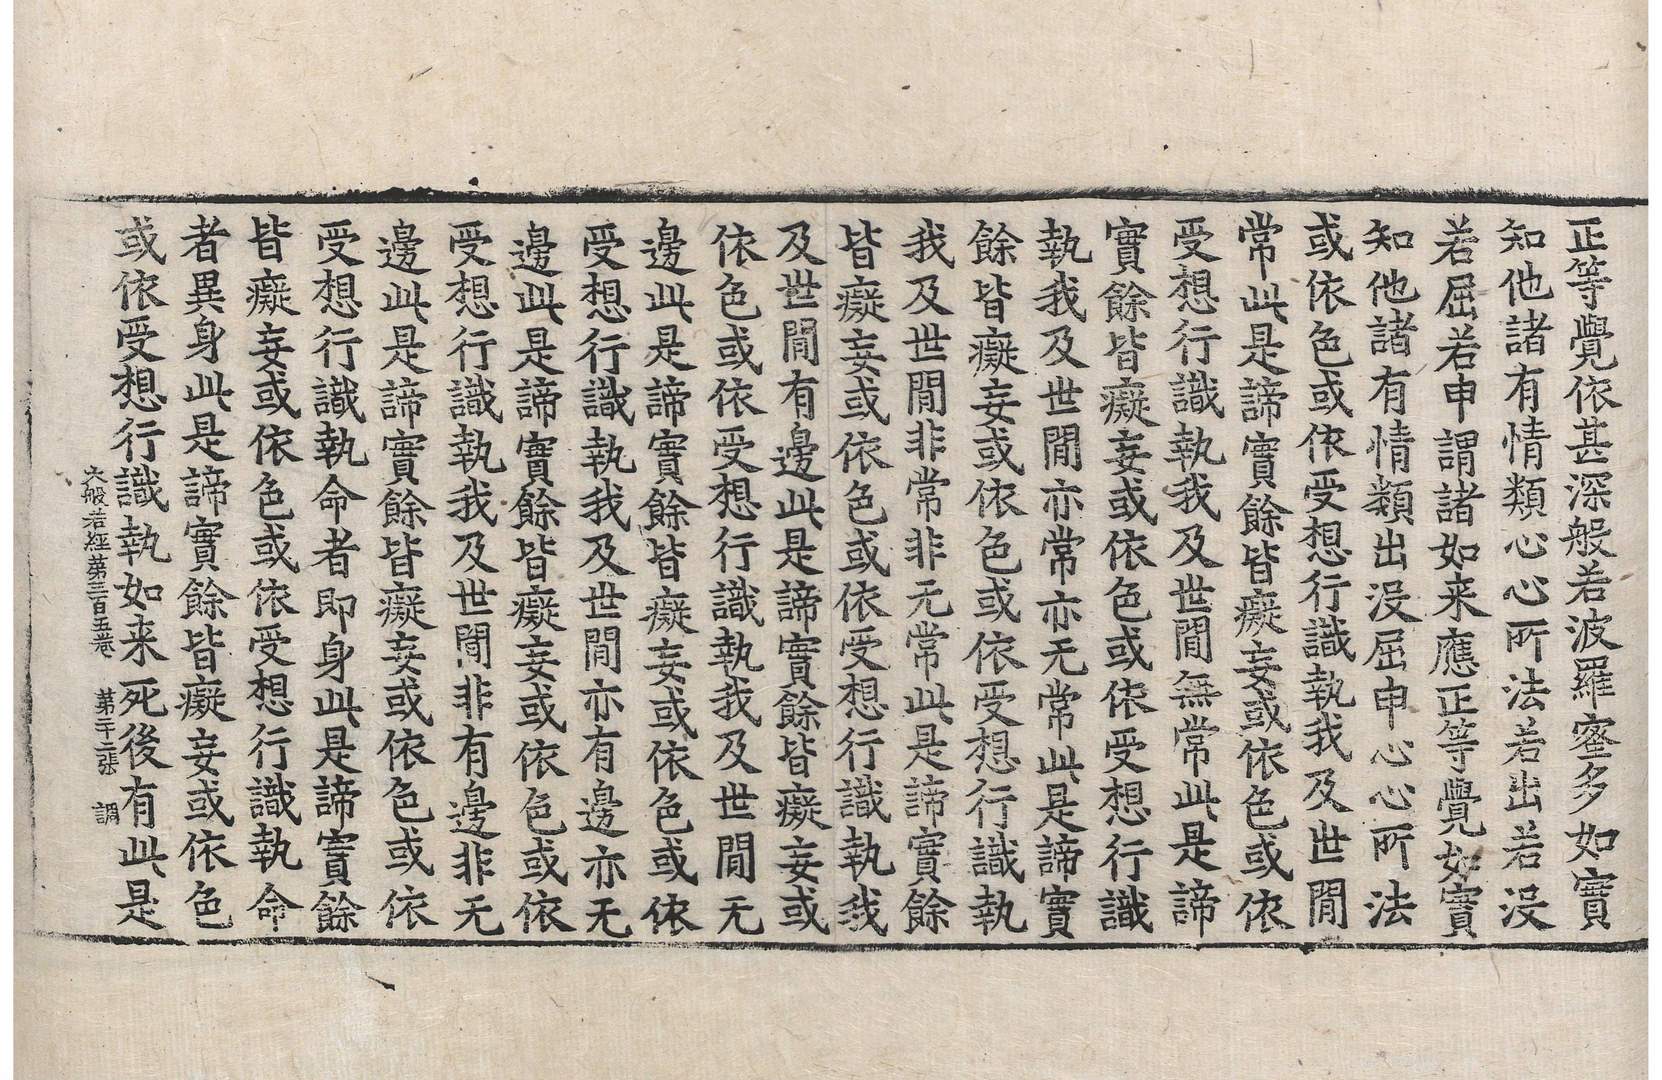 正等覺依甚深般若波羅蜜多如實
知他諸有情類心心所法若出若没
若屈若申謂諸如来應正等覺如實
知他諸有情類出没屈申心心所法
或依色或依受想行識執我及世閒
常此是諦實餘皆癡妄或依色或依
受想行識執我及世閒無常此是諦
實餘皆癡妄或依色或依受想行識
執我及世閒亦常亦无常此是諦實
餘皆癡妄或依色或依受想行識執
我及世閒非常非无常此是諦實餘
皆癡妄或依色或依受想行識執我
及世閒有邊此是諦實餘皆癡妄或
依色或依受想行識執我及世閒无
邊此是諦實餘皆癡妄或依色或依
受想行識執我及世閒亦有邊亦无
邊此是諦實餘皆癡妄或依色或依
受想行識執我及世閒非有邊非无
邊此是諦實餘皆癡妄或依色或依
受想行識執命者即身此是諦實餘
皆癡妄或依色或依受想行識執命
者異身此是諦實餘皆癡妄或依色
或依受想行識執如来死後有此是
大般若經第三百五卷 第二十二張 調